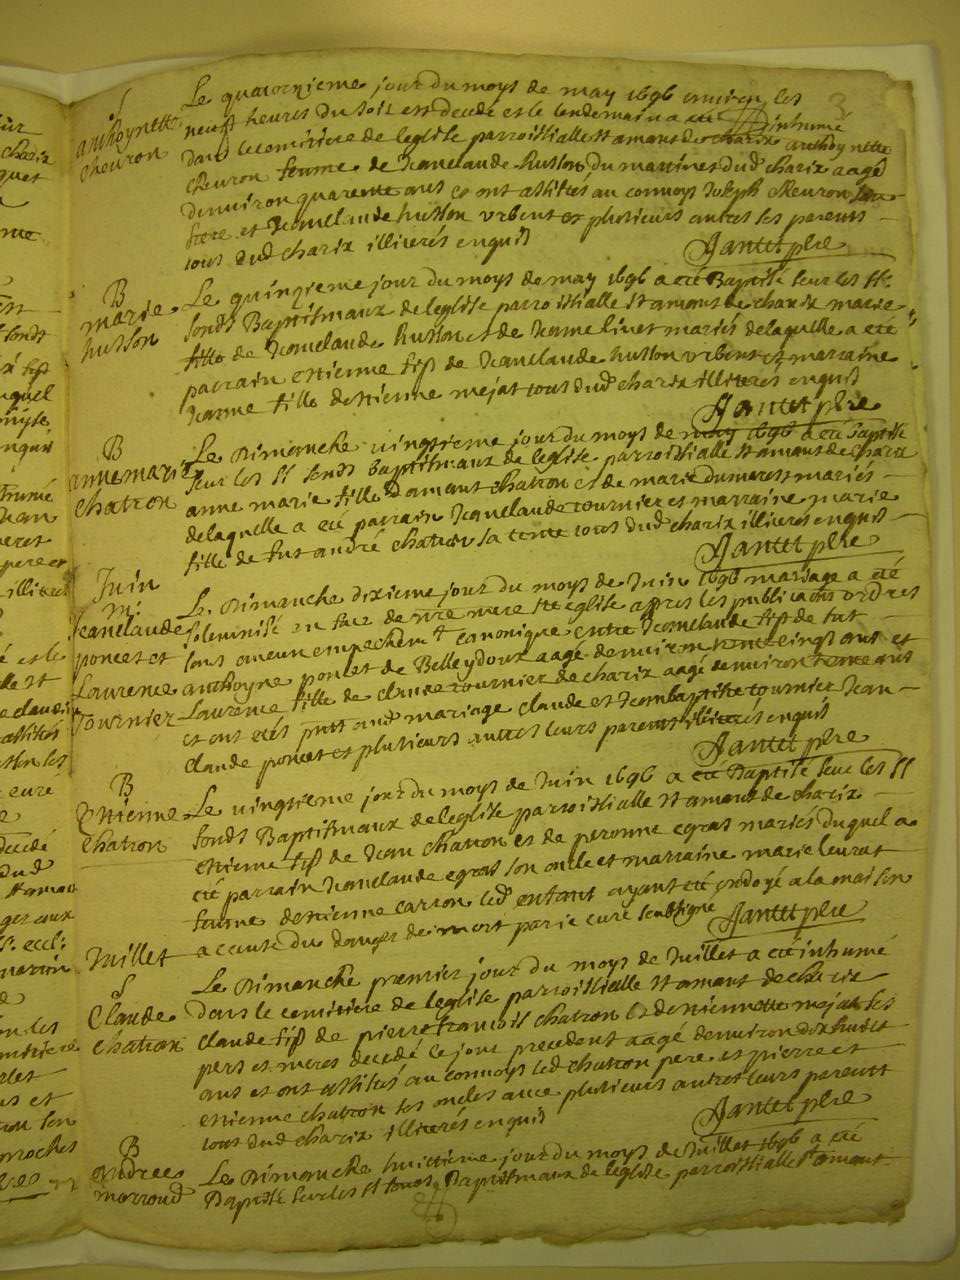 S
anthoynette
chevron
Le quatorzieme jour du moys de may 1696 environ les
neufs heures du soir est decedé et le lendemain a été inhumé
dans le cemitiere de leglise parroissialle st amant de charix anthoynette
chevron femme de Jeanclaude husson du martinet dud charix aagé
denviron quarente ans et ont assistes au convoys Joseph chevron son
frere et Jeanclaude husson urbent et plusieurs autres ses parents
tous dud charix illiterés enquis
Jantet pbre
3
B
marie
husson
Le quinzieme jour du moys de may 1696 a été Baptisé seur les sts
fonds Baptismaux de leglise parroissialle st amant de charix marie
fille de Jeanclaude husson et de Jeanne livet mariés delaquelle a eté
parrain estienne fils de Jeanclaude husson urbent et marraine
Jeanne fille destienne mejat tous dud charix illiterés enquis
Jantet pbre
B
annemarie
chatron
Le Dimanche vingtieme jour du moys de may 1696 a eté baptisé
seur les ss fonds baptismaux de leglise parroissialle st amant de charix
anne marie fille damant chatron et de marie dumarest mariés
delaquelle a eté parrain Jeanclaude tournier et marraine marie
fille de fut andré chatron sa tente tous dud charix illiterés enquis
Jantet pbre
Juin
m
Jeanclaude
poncet et
Laurence
Tournier
Le Dimanche dixieme jour du moys de Juin 1696 mariage a été
solemnisé en face de nre mere ste eglise appres les publicaons ordres
sans aucun empechemt canonique entre Jeanclaude fils de fut
anthoyne poncet de Belleydoux aagé denviron trente cinqs ans et
Laurence fille de claude tournier de charix aagé denviron trente ans
et ont etés pnts aud mariage claude et Jeanbaptiste tournier Jean
claude poncet et plusieurs autres leurs parents illiterés enquis
Jantet pbre
B
Estienne
chatron
Le vingtieme jour du moys de Juin 1696 a eté Baptisé seur les ss
fonds Baptismaux de leglise parroissialle st amant de charix
estienne fils de Jean chatron et de peronne egras mariés duquel a
eté parrain Jeanclaude egras son oncle et marraine marie levrat
femme destienne carron led enfant ayant eté ondoyé a la maison
a cause du danger de mort par le curé soubsigné
Jantet pbre
Juillet
S
Claude
chatron
Le Dimanche premier jour du moys de Juillet a eté inhumé
dans le cemitiere de leglise parroissialle st amant de charix
claude fils de pierrefrançois chatron et destiennette mejat ses
pere et meres decedé le jour precedent aagé denviron dix huict
ans et ont assistés au convoys led chatron pere et pierre et
estienne chatron ses oncles avec plusieurs autres leurs parents
tous dud charix illiterés enquis
Jantet pbre
B
andree
marroud
Le Dimanche huictieme jour du moys de Juillet 1696 a été
Baptisé seur les ss fonds Baptismaux de leglise parroissialle st amant